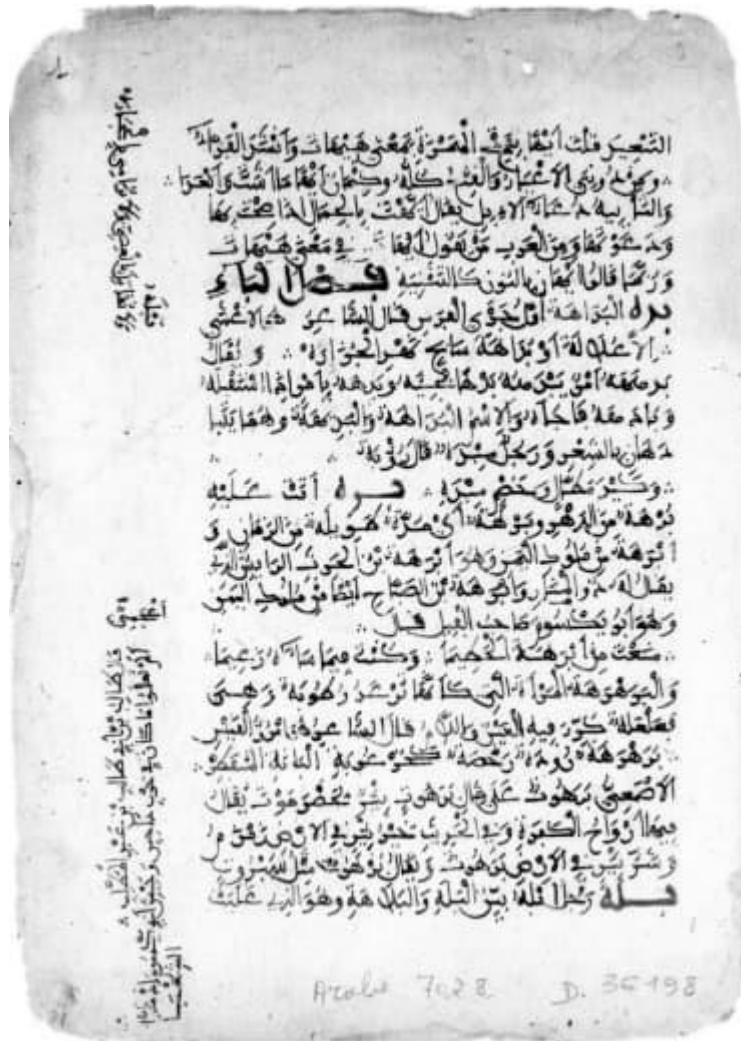 التبعيد قلت أيها بفتح الهمزة بمعنى هيهات وأنشد الفراء
ومن دوني الأعيار والقنع كله وكتمان أيها ما أشت وأبعدا
والتأييه دعاء الإبل يقال أيهت بالجمال إذا صحت بها
ودعوتها ومن العرب من يقول أيهات في معنى هيهات
وربما قالوا أيهان بالنون كالتثنية فصل الباء
بده البداهة أول جري الفرس قال الشاعر هو الأعشى
إلا علالة أو بداهة سابح نهد الجزاره ويقال
بدهه أمر يبدهه بدها فجئه وبدهه بأمر إذا استقبله به
وبادهه فاجأه والاسم البداهة والبديهة وهما يتبا
دهان بالشعر ورجل مبده قال رؤبة
وكيد مطال وخصم مبده بره أتت عليه
برهة من الدهر وبرهة أي مدة طويلة من الزمان و
أبرهة من ملوك اليمن وهو أبرهة بن الحرث الرايش الذي
يقال له ذو المنار وأبرهة بن الصباح أيضا من ملوك اليمن
وهو أبو يكسوم صاحب الفيل قال
منعت من أبرهة الحطيما وكنت فيما ساءه زعيما
والبرهرهة المرأة التي كأنها ترعد رطوبة وهي
فعلعلة كرر فيه العين واللام قال الشاعر هو امرؤ القيس
برهرهة رودة رخصة كخرعوبة البانة المنفطر
الأصمعي برهوت على مثال رهبوت بئر بحضرموت يقال
فيها أرواح الكفرة وفي الحديث خير بئر في الأرض زمزم
وشر بئر في الأرض برهوت ويقال برهوت مثل سبروت
بله رجل أبله بين البله والبلاهة وهو الذي غلبت
طالب بن عبد المطلب
ألم تعلموا ما كان في حرب داحس وجيش أبي يكسوم إذ
الشعبا
Arabe 7028 D. 36198